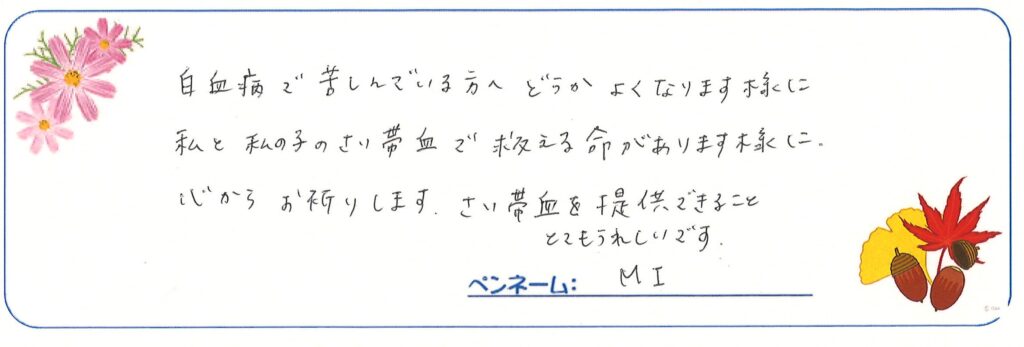 白血病で苦しんでいる方へ どうか よくなります様に
私と 私の子の さい帯血で 救える命があります様に.
心から お祈りします. さい帯血を提供できること
とてもうれしいです.
ペンネーム: M I